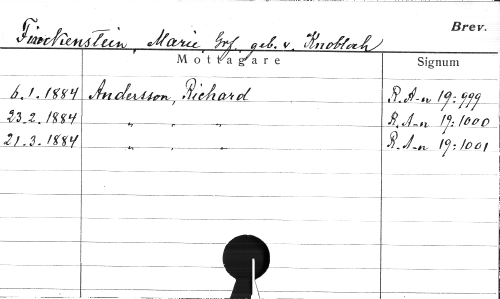 Brev.
Finckenstein, Marie, Grf. geb. v. Knobloch
Mottagare Signum
6.1.1884 Andersson, Richard R.A-n 19:999
23.2.1884 „ „ „ R.A-n 19:1000
21.3.1884 „ „ „ R.A-n 19:1001